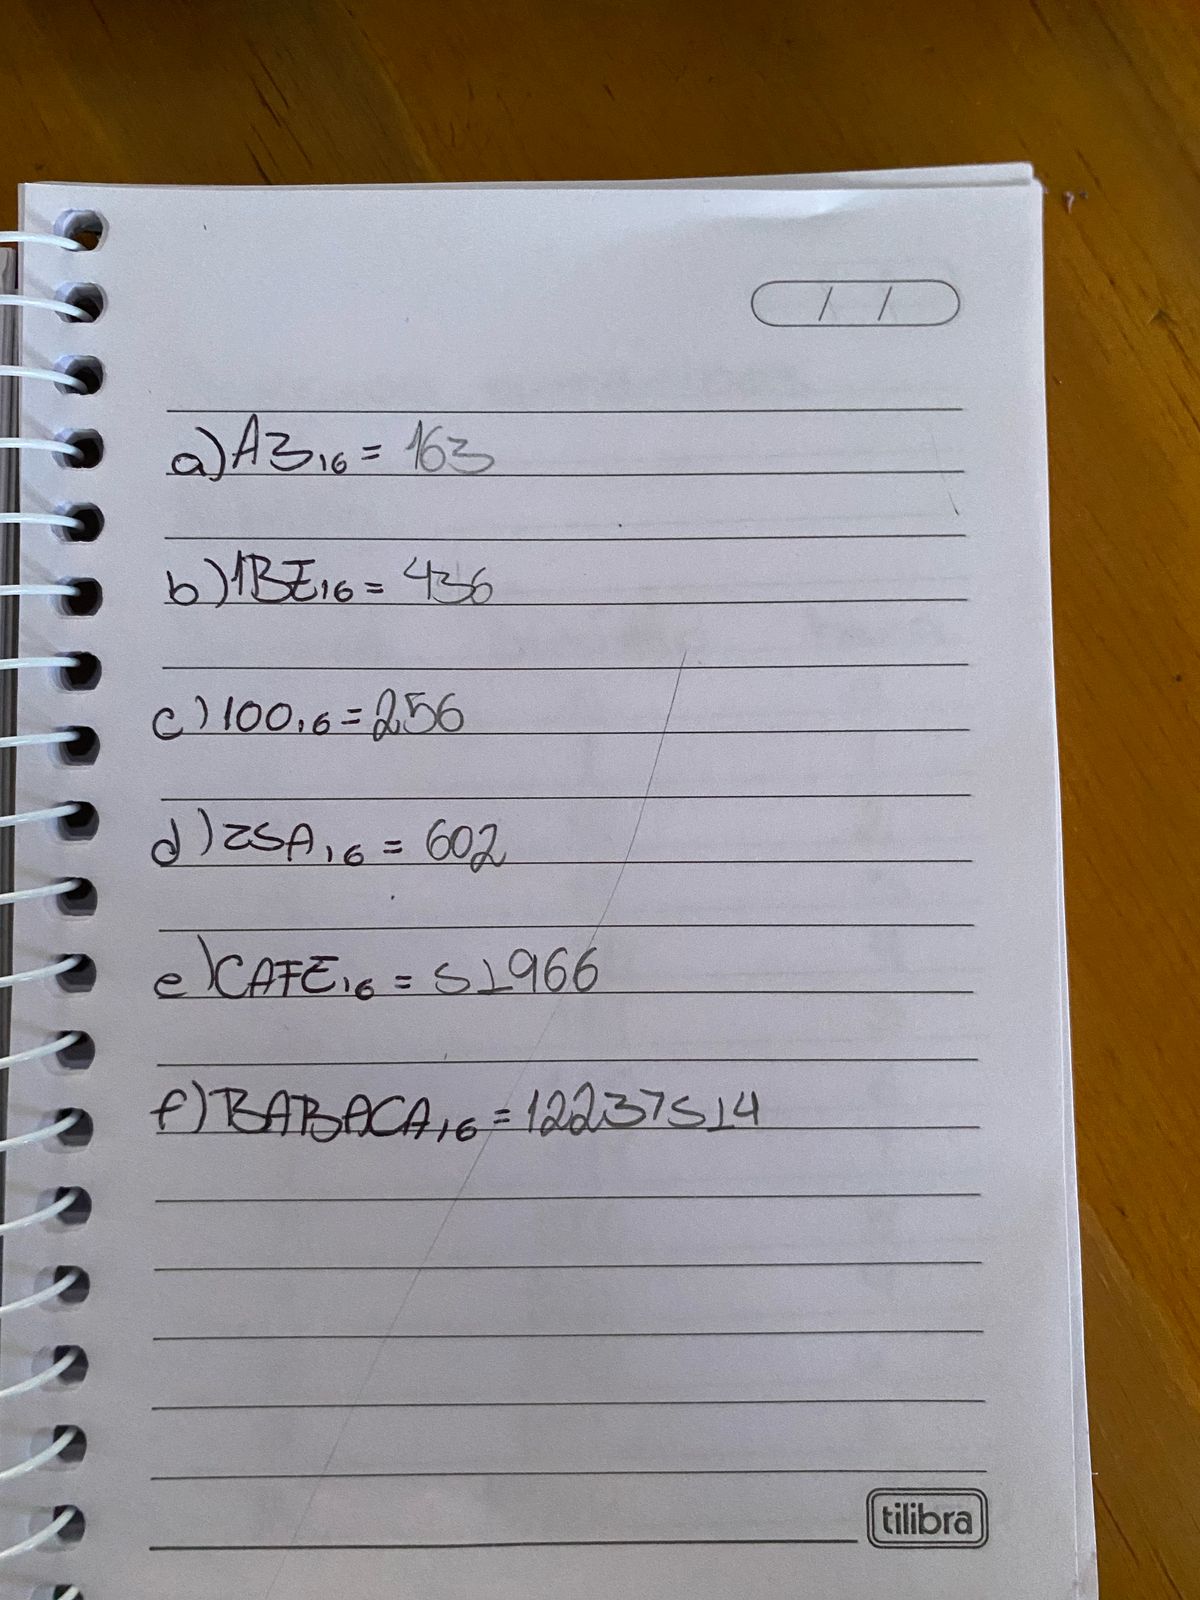 / /
a) A3₁₆ = 163
b) 1BE₁₆ = 436
c) 100₁₆ = 256
d) 25A₁₆ = 602
e) CAFE₁₆ = 51966
f) BABACA₁₆ = 12237514
tilibra